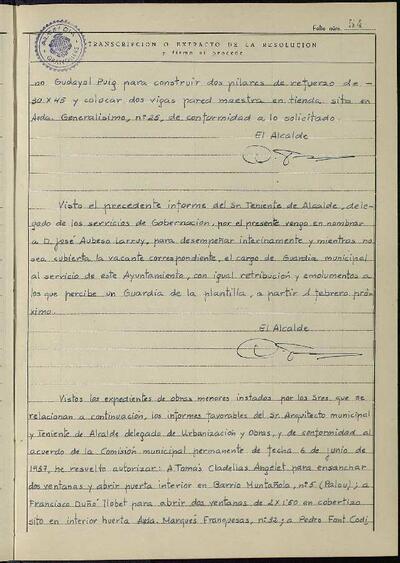 Folio núm. 54
ALCALDIA
GRANOLLERS
TRANSCRIPCION O EXTRACTO DE LA RESOLUCION
y firma si procede
no Gudayol Puig para construir dos pilares de refuerzo de -
30 x 45 y colocar dos vigas pared maestra en tienda sita en
Avda. Generalísimo, nº 25, de conformidad a lo solicitado.
El Alcalde
Visto el precedente informe del Sr. Teniente de Alcalde, dele-
gado de los servicios de Gobernación, por el presente vengo en nombrar
a D. José Aubeso Larruy, para desempeñar interinamente y mientras no
sea cubierta la vacante correspondiente, el cargo de Guardia municipal
al servicio de este Ayuntamiento, con igual retribución y emolumentos a
los que percibe un Guardia de la plantilla, a partir 1 febrero pró-
ximo.
El Alcalde
Vistos los expedientes de obras menores instados por los Sres. que se
relacionan a continuación, los informes favorables del Sr. Arquitecto municipal
y Teniente de Alcalde delegado de Urbanización y Obras, y de conformidad al
acuerdo de la Comisión municipal permanente de fecha 6 de junio de
1957, he resuelto autorizar: A Tomás Cladellas Angelet para ensanchar
dos ventanas y abrir puerta interior en Barrio Muntañola, nº 5 (Palou); a
Francisco Duñó Llobet para abrir dos ventanas de 2 x 1'50 en cobertizo
sito en interior huerta Avda. Marqués Franquesas, nº 32; a Pedro Font Codi,